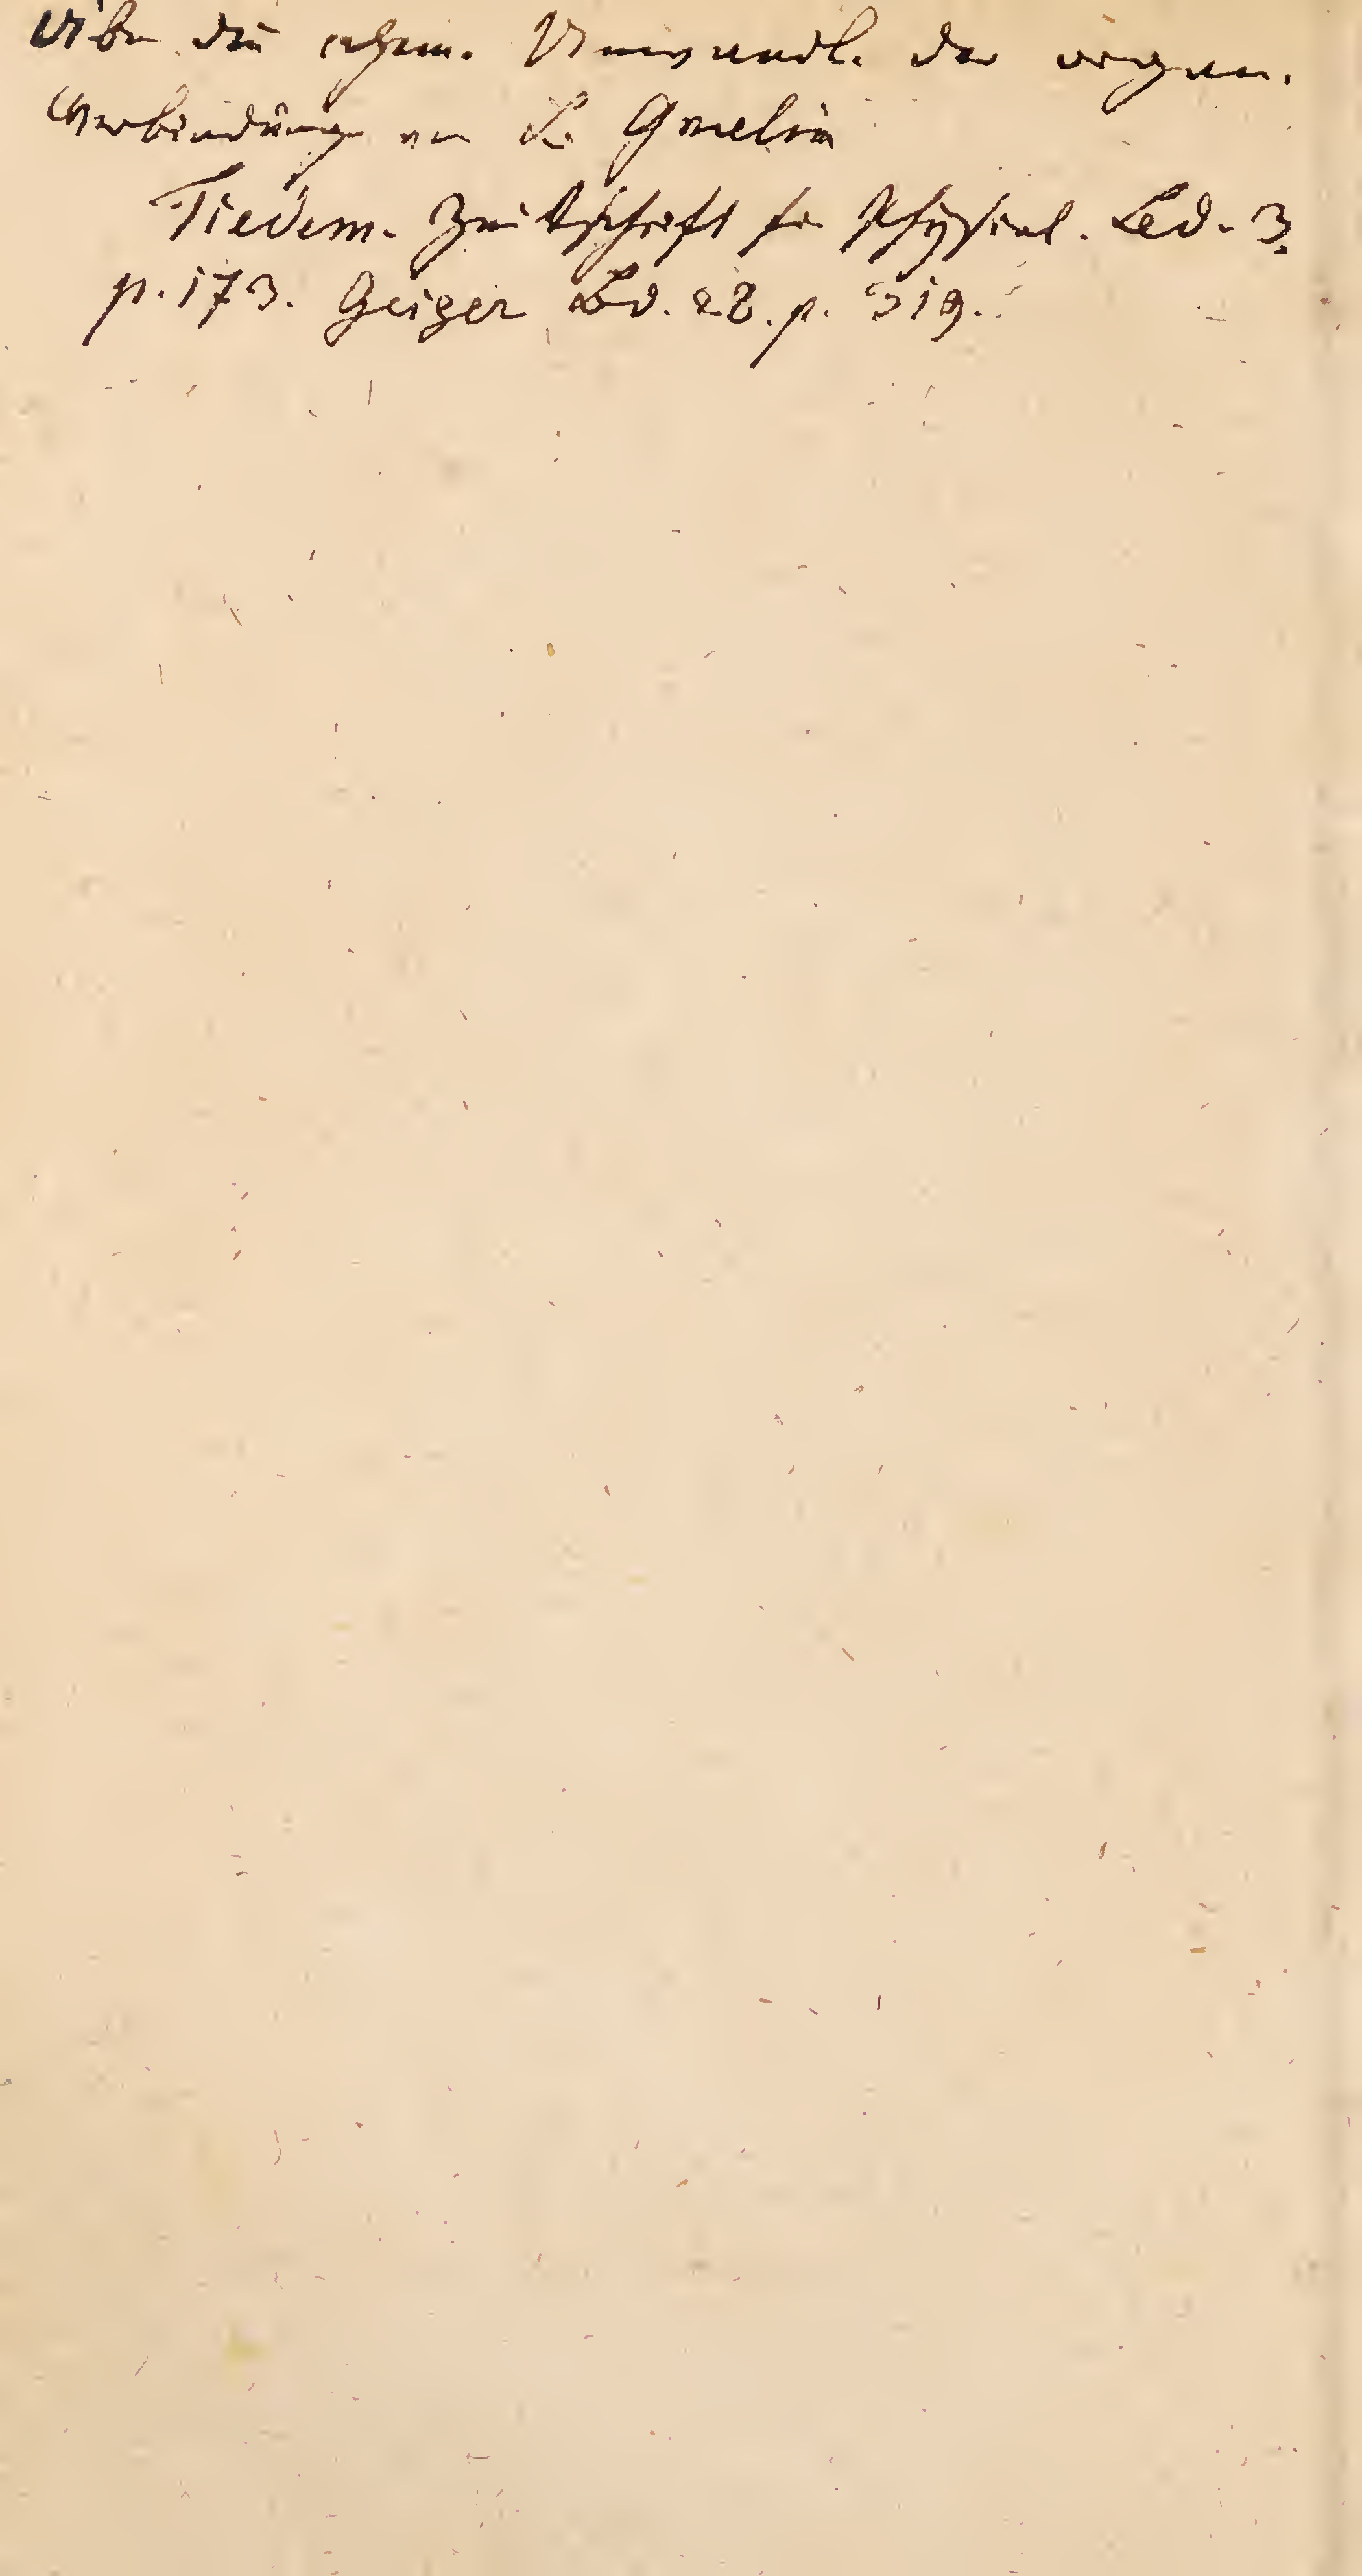 Über die chem. Umwandl. der organ.
Verbindung von L. Gmelin
Tiedem. Zeitschrift für Physiol. Bd. 3.
p. 173. Geiger Bd. 28. p. 319.